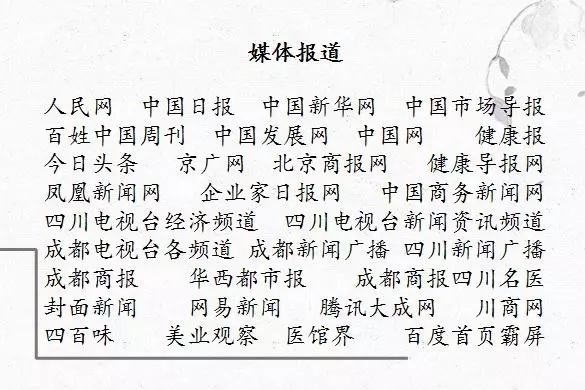 媒体报道
人民网 中国日报 中国新华网 中国市场导报
百姓中国周刊 中国发展网 中国网 健康报
今日头条 京广网 北京商报网 健康导报网
凤凰新闻网 企业家日报网 中国商务新闻网
四川电视台经济频道 四川电视台新闻资讯频道
成都电视台各频道 成都新闻广播 四川新闻广播
成都商报 华西都市报 成都商报四川名医
封面新闻 网易新闻 腾讯大成网 川商网
四百味 美业观察 医馆界 百度首页霸屏